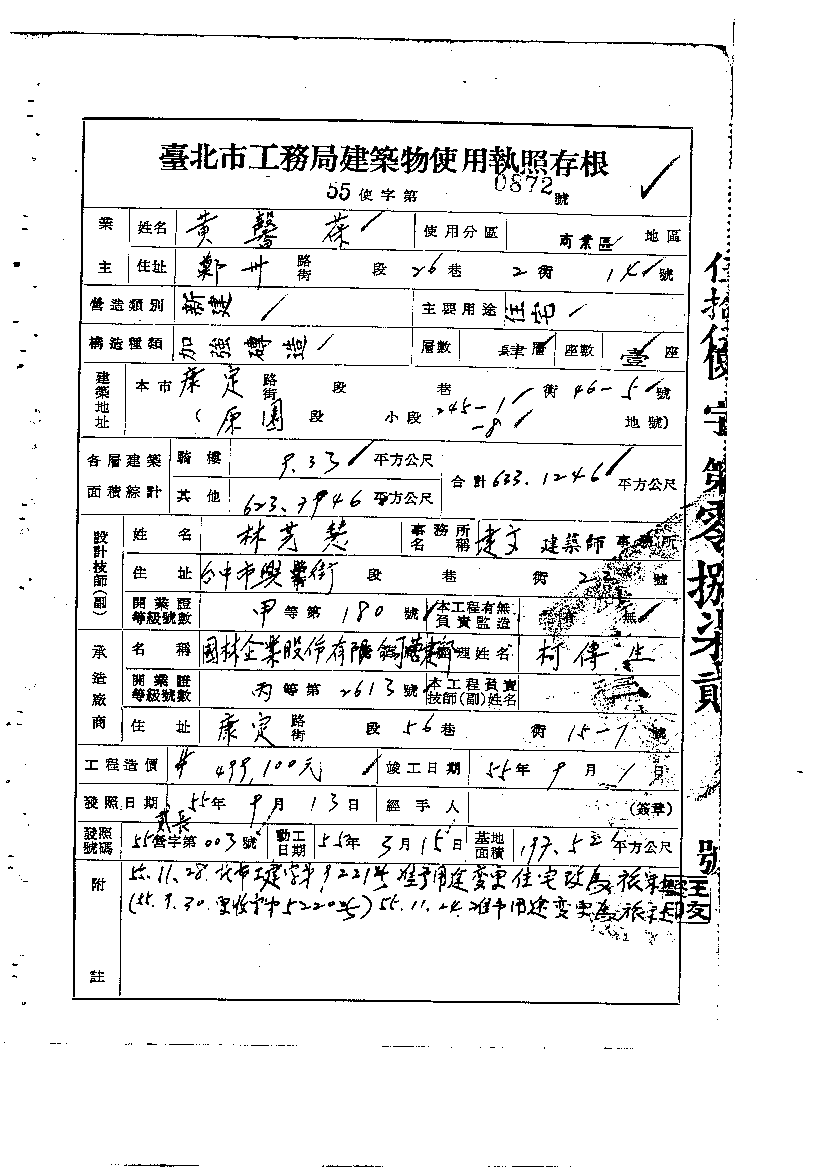 臺北市工務局建築物使用執照存根
55使字第 0872 號
業主 姓名 黃馨葆 使用分區 商業區 地區
住址 鄭州 路街 段 26巷 2衖 14號
營造類別 新建 主要用途 住宅
構造種類 加強磚造 層數 肆層 座數 壹座
建築地址 本市康定 路街 段 巷 衖 46-5號
(原園段 小段 245-1 -8 地號)
各層建築面積綜計 騎樓 9.33 平方公尺 合計633.1246平方公尺
其他 623.7946 平方公尺
設計技師(副) 姓名 林芳 事務所名稱 建築師事務所
住址 台中市興 街 段 巷 衖 號
開業證等級號數 甲等第180號 本工程有無負責監造 無
承造廠商 名稱 國林企業股份有限公司營 經理姓名 柯傳
開業證等級號數 丙等第2613號 本工程負責技師(副)姓名
住址 康定 路街 段 56巷 衖 15-7號
工程造價 499,100元 竣工日期 55年9月1日
發照日期 55年9月13日 經手人 (簽章)
發照號碼 55營字第003號 動工日期 55年3月15日 基地面積 197.52平方公尺
附註 55.11.28.北市工建字第9221號准予用途變更住宅改為旅
(55.9.30. 收 字 5220號) 55.11.24.准予用途變更為旅
伍拾伍使字第零捌柒貳號